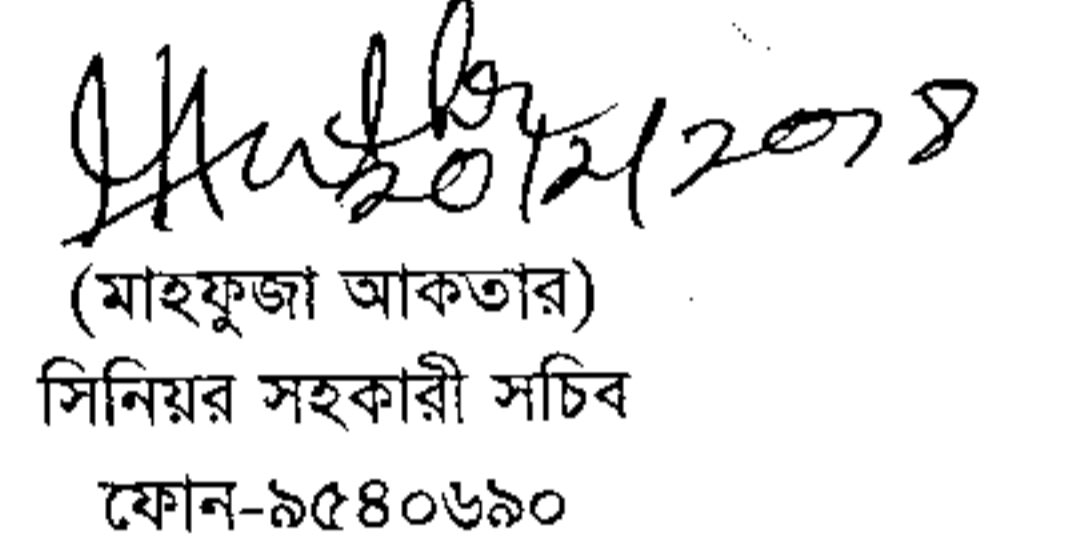 20/2/2018
(মাহফুজা আকতার)
সিনিয়র সহকারী সচিব
ফোন-৯৫৪০৬৯০